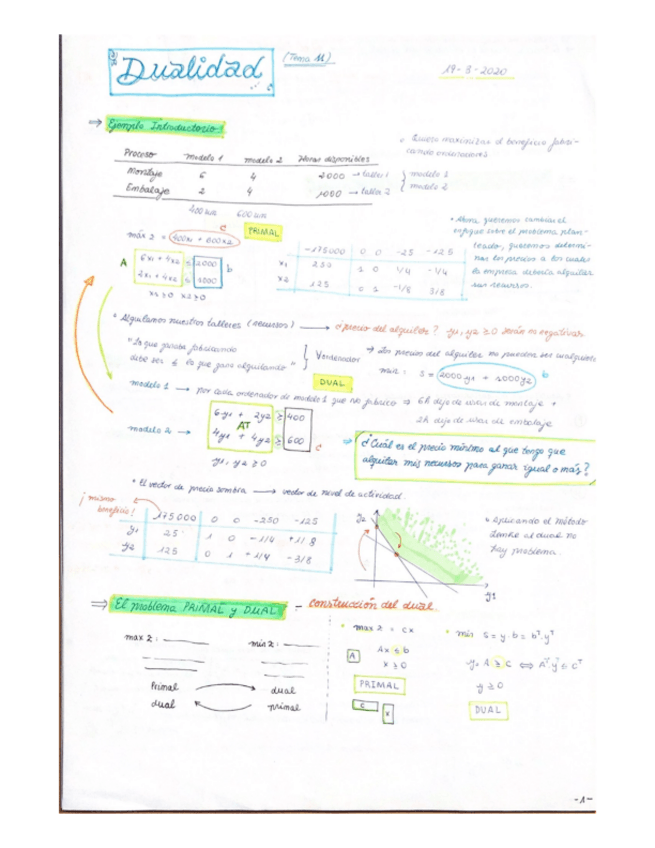 Dualidad
(Tema 11)
19-3-2020
⇒ Ejemplo Introductorio:
Quiero maximizar el beneficio fabri-
cando ordenadores
Proceso modelo 1 modelo 2 Horas disponibles
Montaje 6 4 2000 → taller 1 } modelo 1
Embalaje 2 4 1000 → taller 2 modelo 2
400um 600um
c
máx z = 400x1 + 600x2
PRIMAL
A 6x1 + 4x2 ≤ 2000 b
2x1 + 4x2 ≤ 1000
x1 ≥ 0 x2 ≥ 0
-175000 0 0 -25 -125
x1 250 1 0 1/4 -1/4
x2 125 0 1 -1/8 3/8
• Ahora, queremos cambiar el
enfoque sobre el problema plan-
teado, queremos determi-
nar los precios a los cuales
la empresa debería alquilar
sus recursos.
• Alquilamos nuestros talleres (recursos) → ¿precio del alquiler? y1, y2 ≥ 0
"Lo que gano fabricando
debe ser ≤ lo que gano alquilando" } Vendedor
→ Los precios del alquiler no pueden ser cualquiera
mín: s = 2000y1 + 1000y2 b
DUAL
modelo 1 → por cada ordenador de modelo 1 que no fabrico ⇒ 6h dejo de usar de montaje +
2h dejo de usar de embalaje
6y1 + 2y2 ≥ 400
modelo 2 → AT
4y1 + 4y2 ≥ 600 c
y1, y2 ≥ 0
⇒ ¿Cuál es el precio mínimo al que tengo que
alquilar mis recursos para ganar igual o más?
• El vector de precio sombra → vector de nivel de actividad
¡mismo
beneficio!
175000 0 0 -250 -125
y1 25 1 0 -1/4 +1/8
y2 125 0 1 +1/4 -3/8
y2
y1
Aplicando el método
al dual no
hay problema.
⇒ El problema PRIMAL y DUAL - Construcción del dual.
max z: mín z:
Primal → dual
dual ← primal
• max z = cx
A Ax ≤ b
x ≥ 0
PRIMAL
c x
• mín s = y·b = bT.yT
y·A ≥ c ⇔ AT yT ≥ cT
y ≥ 0
DUAL
-1-